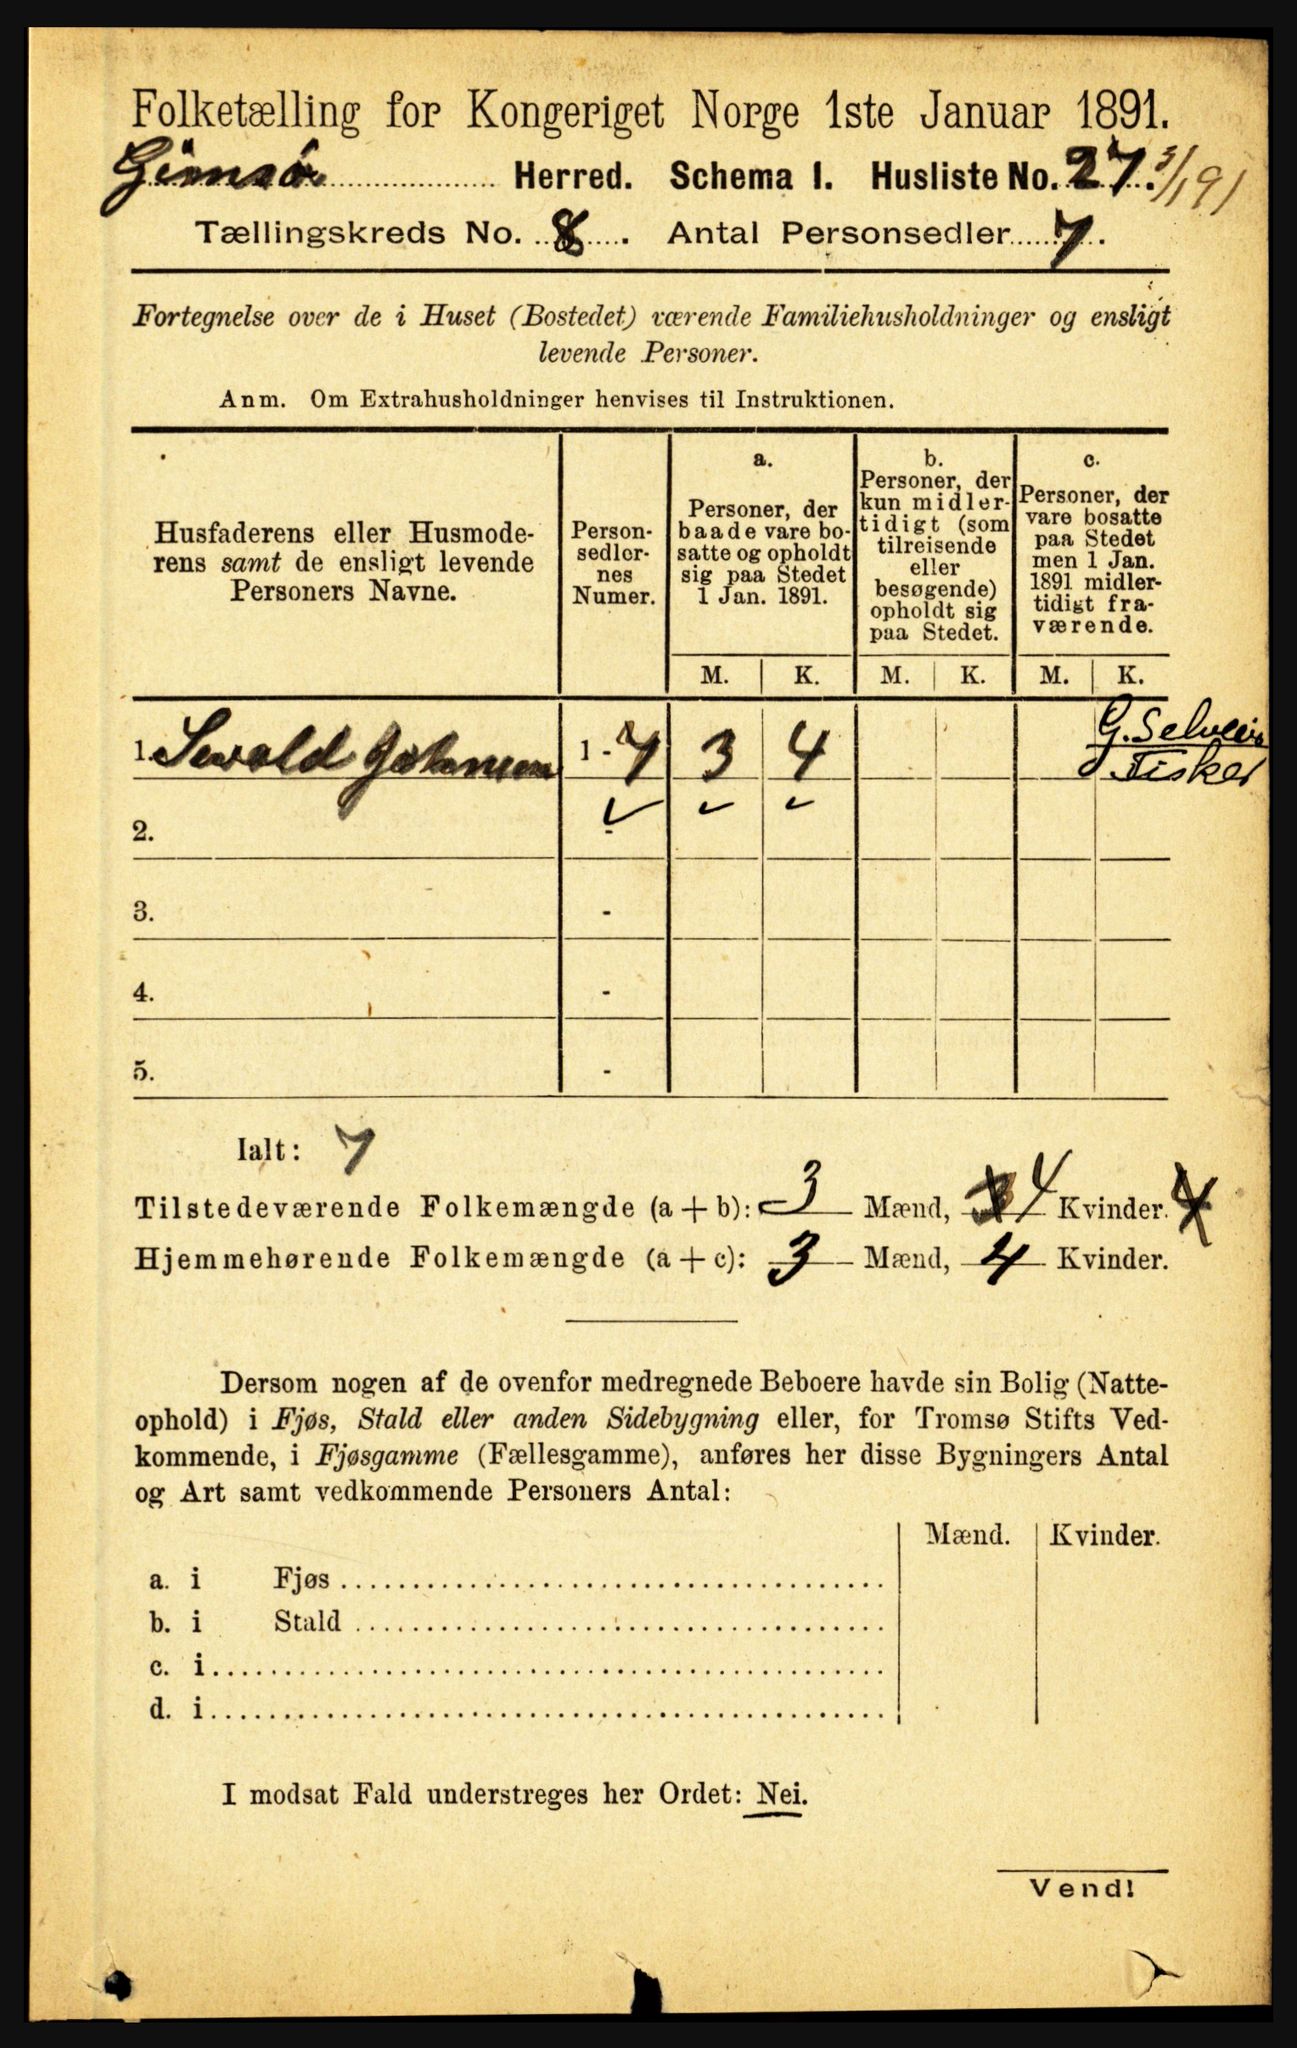 Folketælling for Kongeriget Norge 1ste Januar 1891.
Gimsø Herred. Schema I. Husliste No. 27. 3/1 91
Tællingskreds No. 8. Antal Personsedler 7.
Fortegnelse over de i Huset (Bostedet) værende Familiehusholdninger og ensligt
levende Personer.
Anm. Om Extrahusholdninger henvises til Instruktionen.
Husfaderens eller Husmode-
rens samt de ensligt levende
Personers Navne.
Person-
sedler-
nes
Numer.
a.
Personer, der
baade vare bo-
satte og opholdt
sig paa Stedet
1 Jan. 1891.
b.
Personer, der
kun midler-
tidigt (som
tilreisende
eller
besøgende)
opholdt sig
paa Stedet.
c.
Personer, der
vare bosatte
paa Stedet
men 1 Jan.
1891 midler-
tidigt fra-
værende.
M. K. M. K. M. K.
1. Sevald Johnsen 1 - 7 3 4 G. Selveier
Fisker
2. -
3. -
4. -
5. -
Ialt: 7
Tilstedeværende Folkemængde (a + b): 3 Mænd, 4 Kvinder.
Hjemmehørende Folkemængde (a + c): 3 Mænd, 4 Kvinder.
Dersom nogen af de ovenfor medregnede Beboere havde sin Bolig (Natte-
ophold) i Fjøs, Stald eller anden Sidebygning eller, for Tromsø Stifts Ved-
kommende, i Fjøsgamme (Fællesgamme), anføres her disse Bygningers Antal
og Art samt vedkommende Personers Antal:
Mænd. Kvinder.
a. i Fjøs
b. i Stald
c. i
d. i
I modsat Fald understreges her Ordet: Nei.
Vend!